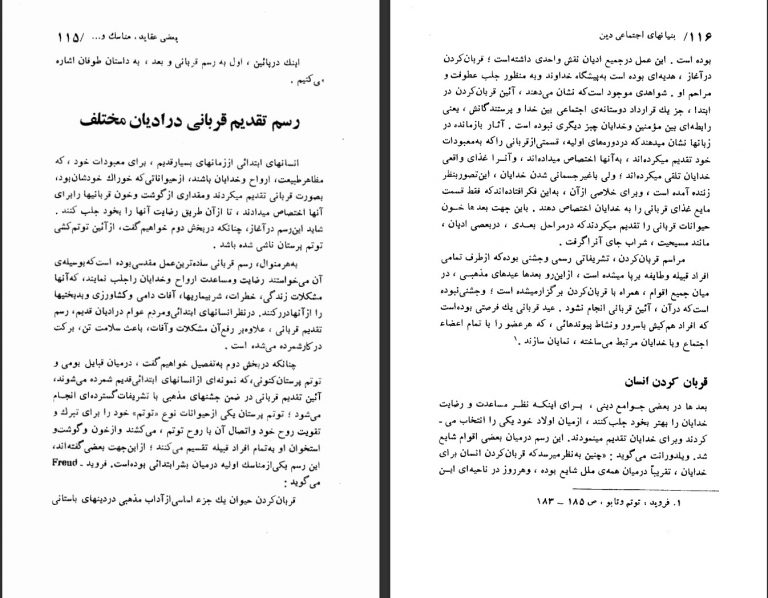 بعضی عقاید، مناسك و... /۱۱۵
اینك درپائین ، اول به رسم قربانی و بعد ، به داستان طوفان اشاره
میکنیم .
رسم تقدیم قربانی درادیان مختلف
انسانهای ابتدائی اززمانهای بسیارقدیم ، برای معبودات خود ، که
مظاهرطبیعت، ارواح وخدایان باشند، ازحیواناتی که خوراك خودشان بود،
بصورت قربانی تقدیم میکردند ومقداری ازگوشت وخون قربانیها رابرای
آنها اختصاص میدادند ، تا ازآن طریق رضایت آنها را بخود جلب کنند .
شاید این رسم درآغاز، چنانکه دربخش دوم خواهیم گفت، ازآئین توتم کشی
توتم پرستان ناشی شده باشد .
به هرمنوال، رسم قربانی ساده ترین عمل مقدسی بوده است که بوسیله ی
آن می خواستند رضایت ومساعدت ارواح وخدایان راجلب نمایند، که آنها
مشکلات زندگی، خطرات، شربیماریها، آفات دامی وکشاورزی وبدبختیها
را ازآنهادورکنند. درنظرانسانهای ابتدائی ومردم عوام درادیان قدیم، رسم
تقدیم قربانی ، علاوه بر رفع آن مشکلات وآفات، باعث سلامت تن، برکت
درکارشمرده می شده است .
چنانکه دربخش دوم به تفصیل خواهیم گفت ، درمیان قبایل بومی و
توتم پرستان کنونی، که نمونه ای ازانسانهای ابتدائی قدیم شمرده می شوند،
آئین تقدیم قربانی در ضمن جشنهای مذهبی با تشریفات گسترده ای انجام
می شود ؛ توتم پرستان یکی ازحیوانات نوع «توتم» خود را برای تبرك و
تقویت روح خود واتصال آن با روح توتم ، می کشند وازخون وگوشت و
استخوان او به تمام افراد قبیله تقسیم می کنند ؛ ازاین جهت بعضی گفته اند،
این رسم یکی ازمناسك اولیه درمیان بشرابتدائی بوده است. فروید - Freud
می گوید :
قربان کردن حیوان یك جزء اساسی ازآداب مذهبی دردینهای باستانی
۱۱۶/ بنیانهای اجتماعی دین
بوده است . این عمل درجمیع ادیان نقش واحدی داشته است ؛ قربان کردن
درآغاز ، هدیه ای بوده است به پیشگاه خداوند وبه منظور جلب عطوفت و
مراحم او . شواهدی موجود است که نشان می دهند ، آئین قربان کردن در
ابتدا ، جز یك قرارداد دوستانه ی اجتماعی بین خدا و پرستندگانش ، یعنی
رابطه ای بین مؤمنین وخدایان چیز دیگری نبوده است . آثار بازمانده در
زبانها نشان میدهند که دردوره های اولیه، قسمتی ازقربانی راکه به معبودات
خود تقدیم میکرده اند ، به آنها اختصاص میداده اند ، وآنرا غذای واقعی
خدایان تلقی میکرده اند ؛ ولی باغیرجسمانی شدن خدایان ، این تصوربنظر
زننده آمده است ، وبرای خلاصی ازآن ، به این فکرافتاده اند که فقط قسمت
مایع غذای قربانی را به خدایان اختصاص دهند . باین جهت بعدها خون
حیوانات قربانی را تقدیم میکردند که درمراحل بعدی ، دربعضی ادیان ،
مانند مسیحیت ، شراب جای آنرا گرفت .
مراسم قربان کردن ، تشریفاتی رسمی وجشنی بوده که ازطرف تمامی
افراد قبیله وطایفه برپا میشده است ، ازاین رو بعدها عیدهای مذهبی ، در
میان جمیع اقوام ، همراه با قربان کردن برگزارمیشده است ؛ وجشنی نبوده
است که درآن ، آئین قربانی انجام نشود . عید قربانی یك فرصتی بوده است
که افراد هم کیش باسرور ونشاط پیوندهائی ، که هرعضو را با تمام اعضاء
اجتماع وباخدایان مرتبط می ساخته ، نمایان سازند .۱
قربان کردن انسان
بعد ها در بعضی جوامع دینی ، برای اینکه نظر مساعدت و رضایت
خدایان را بهتر بخود جلب کنند ، ازمیان اولاد خود یکی را انتخاب می -
کردند وبرای خدایان تقدیم مینمودند. این رسم درمیان بعضی اقوام شایع
شد. ویلدورانت می گوید : «چنین به نظر میرسد که قربان کردن انسان برای
خدایان ، تقریباً درمیان همه ی ملل شایع بوده ، وهرروز در ناحیه ای این
۱. فروید ، توتم وتابو ، ص ۱۸۵ – ۱۸۳